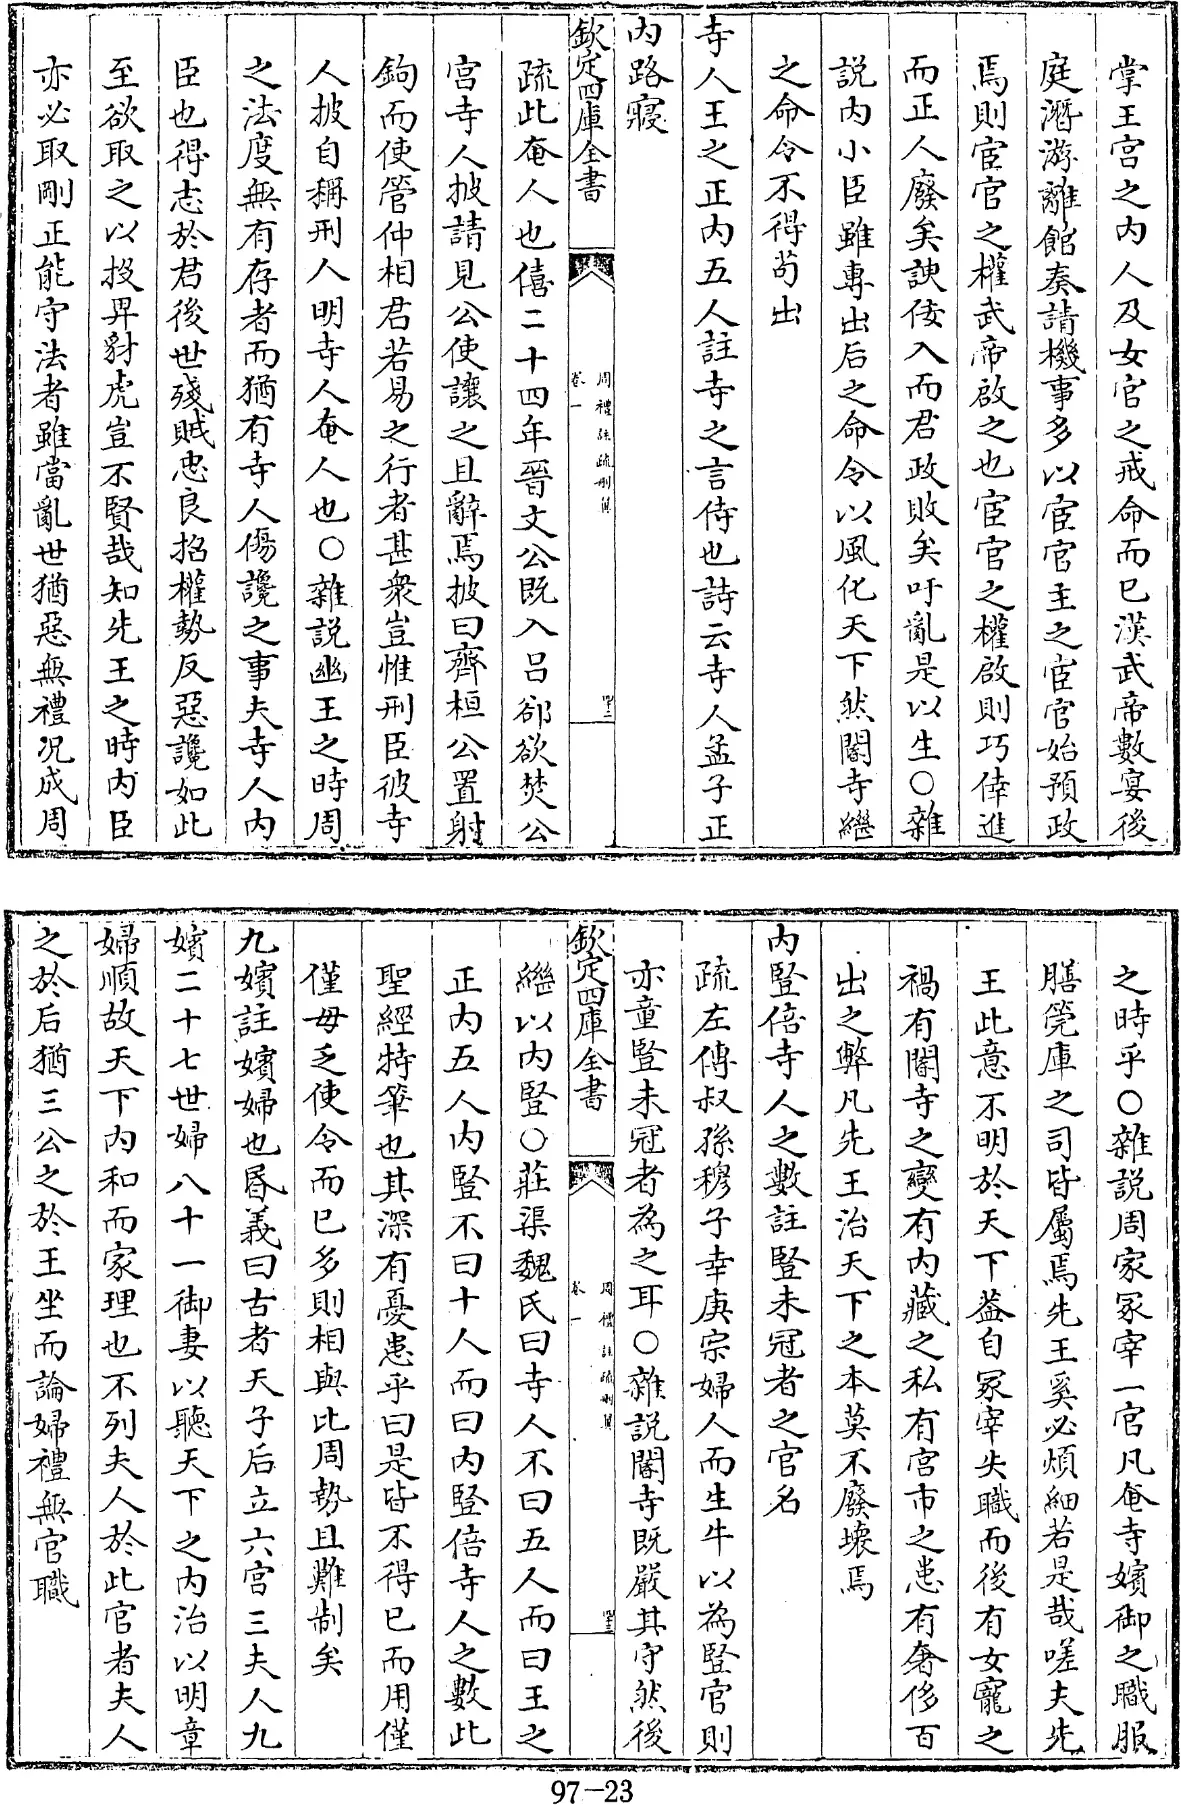 掌王宫之内人及女官之戒命而已漢武帝數宴後
庭潛游離館奏請機事多以宦官主之宦官始預政
焉則宦官之權武帝啟之也宦官之權啟則巧倖進
而正人廢矣諛佞入而君政敗矣吁亂是以生○雜
説内小臣雖專出后之命令以風化天下然閽寺繼
之命令不得茍出
寺人王之正内五人註寺之言侍也詩云寺人孟子正
内路寢
欽定四庫全書
周禮註疏刪翼
卷一
疏此奄人也僖二十四年晉文公既入吕郤欲焚公
宫寺人披請見公使讓之且辭焉披曰齊桓公置射
鉤而使管仲相君若易之行者甚衆豈惟刑臣彼寺
人披自稱刑人明寺人奄人也○雜説幽王之時周
之法度無有存者而猶有寺人傷讒之事夫寺人内
臣也得志於君後世殘賊忠良招權勢反惡讒如此
至欲取之以投畀豺虎豈不賢哉知先王之時内臣
亦必取剛正能守法者雖當亂世猶惡無禮况成周
之時乎○雜説周家冢宰一官凡奄寺嬪御之職服
膳筦庫之司皆屬焉先王奚必煩細若是哉嗟夫先
王此意不明於天下葢自冢宰失職而後有女寵之
禍有閽寺之變有内藏之私有宫市之患有奢侈百
出之弊凡先王治天下之本莫不廢壊焉
内豎倍寺人之數註豎未冠者之官名
疏左傳叔孫穆子幸庚宗婦人而生牛以為豎官則
亦童豎未冠者為之耳○雜説閽寺既嚴其守然後
欽定四庫全書
周禮註疏刪翼
卷一
繼以内豎○莊渠魏氏曰寺人不曰五人而曰王之
正内五人内豎不曰十人而曰内豎倍寺人之數此
聖經特筆也其深有憂患乎曰是皆不得已而用僅
僅毋乏使令而已多則相與比周勢且難制矣
九嬪註嬪婦也昏義曰古者天子后立六宫三夫人九
嬪二十七世婦八十一御妻以聽天下之内治以明章
婦順故天下内和而家理也不列夫人於此官者夫人
之於后猶三公之於王坐而論婦禮無官職
97-23